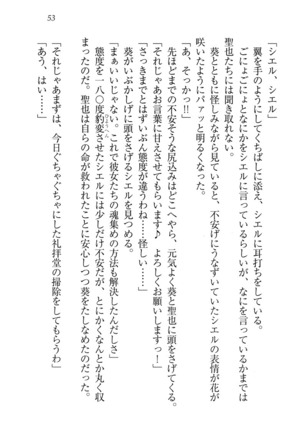 53
「シエル、シエル」
翼を手のようにしてくちばしに添え、シエルに耳打ちをしている。
ごにょごにょとなにかをシエルに言っているらしいが、なにを言っているかまでは
聖也たちには聞き取れない。
葵とともに怪しみながら見ていると、不安げにうなずいていたシエルの表情が花が
咲いたようにパァッと明るくなった。
「あ、そっか!!」
先ほどまでの不安そうな尻込みはどこへやら、元気よく葵と聖也に頭をさげてくる。
「それじゃあお言葉に甘えさせてもらいます♪　よろしくお願いしますっ!」
「さっきまでとずいぶん態度が違うわね……怪しい……」
葵がいぶかしげに頭をさげるシエルを見つめる。
「まぁいいじゃない。これで彼女たちの魂集めの方法も解決したんだしさ」
態度を一八〇度豹変させたシエルには少しだけ不安だが、とにかくなんとか丸く収
まったのだ。聖也は自らの命が救われたことに安心しつつ葵をたしなめたのだった。
「それじゃあまずは、今日ぐちゃぐちゃにした礼拝堂の掃除をしてもらうわ」
「あう、はい……」